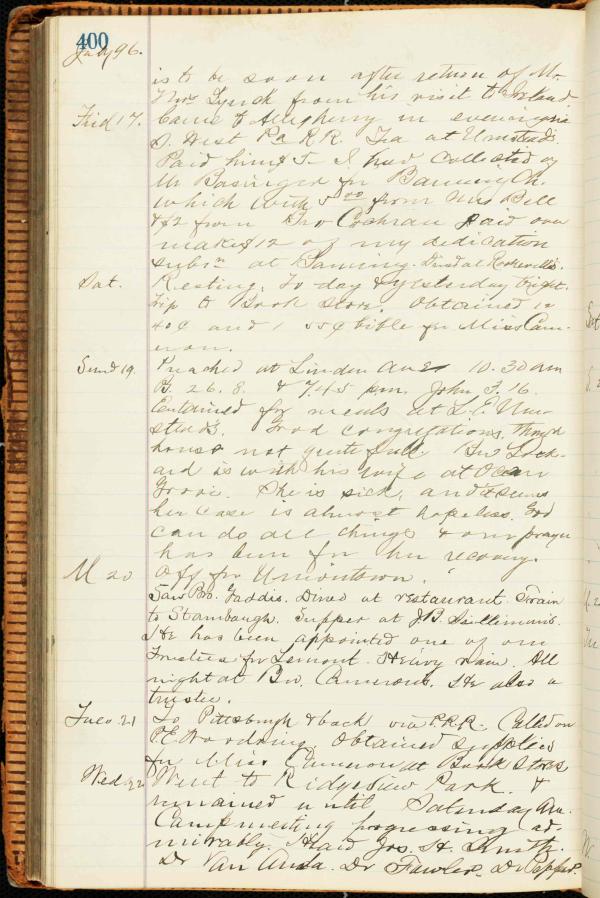 400
July 96.
is to be soon after return of Mr
& Mrs Lynch from his visit to Ireland.
Frid 17. Came to Allegheny in evening via
S. West Pa R.R. Tea at Umstead's.
Paid him $5- I had collected of
Mr Basinger for Banning Ch.
which with 5 00 from Mrs Bell
& $2 from Bro Cochran paid over
makes $12 of my dedication
subsn at Banning. Dined at
Sat. Resting, to day & yesterday bright.
Trip to Book Store. Obtained 12
40¢ and 1 55¢ bible for Miss Cam-
eron.
Sund 19. Preached at Linden Ave 10.30 am
26.8. & 7.45 pm. John 3.16.
Entertained for meals at L.E. Um-
stead's. Good congregations, though
house not quite full. Bro Lock-
ard is with his wife at Ocean
Grove. She is sick, and it seems
her case is almost hopeless. God
can do all things & our prayer
has been for her recovery.
M 20 Off for Uniontown.
Saw Bro. Gaddis. Dined at restaurant. Train
to Stambaugh. Supper at J.B.
He has been appointed one of our
Trustees for Lemont. Heavy rain. All
night at Bro. Cameron's. He also a
trustee.
Tues. 21 To Pittsburgh & back via P.R.R. Called on
P.E. Wordring. Obtained supplies
for Miss Cameron at Book Store
Wed 22 Went to Ridgeview Park. &
remained until Saturday am.
Campmeeting progressing ad-
mirably. Heard Jos. H. Smith.
Dr Van Anda. Dr Fowler. Dr